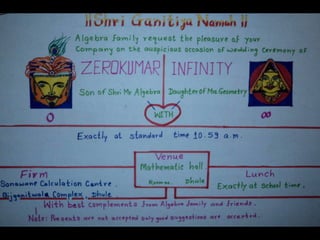 ॥Shri Ganitija Namah॥
Algebra family request the pleasure of your
Company on the auspicious occasion of wedding ceremony of
ZEROKUMAR INFINITY
Son of Shri Mr Algebra Daughter of Mrs Geometry
WITH
0 ∞
Exactly at standard time 10.59 a.m.
Venue
Mathematic hall.
Dhule
Firm
Sonawane Calculation Centre.
Bijganitwala Complex, Dhule
Lunch
Exactly at school time.
With best complements from Algebra family and friends.
Note: Presents are not accepted only good suggestions are accepted.